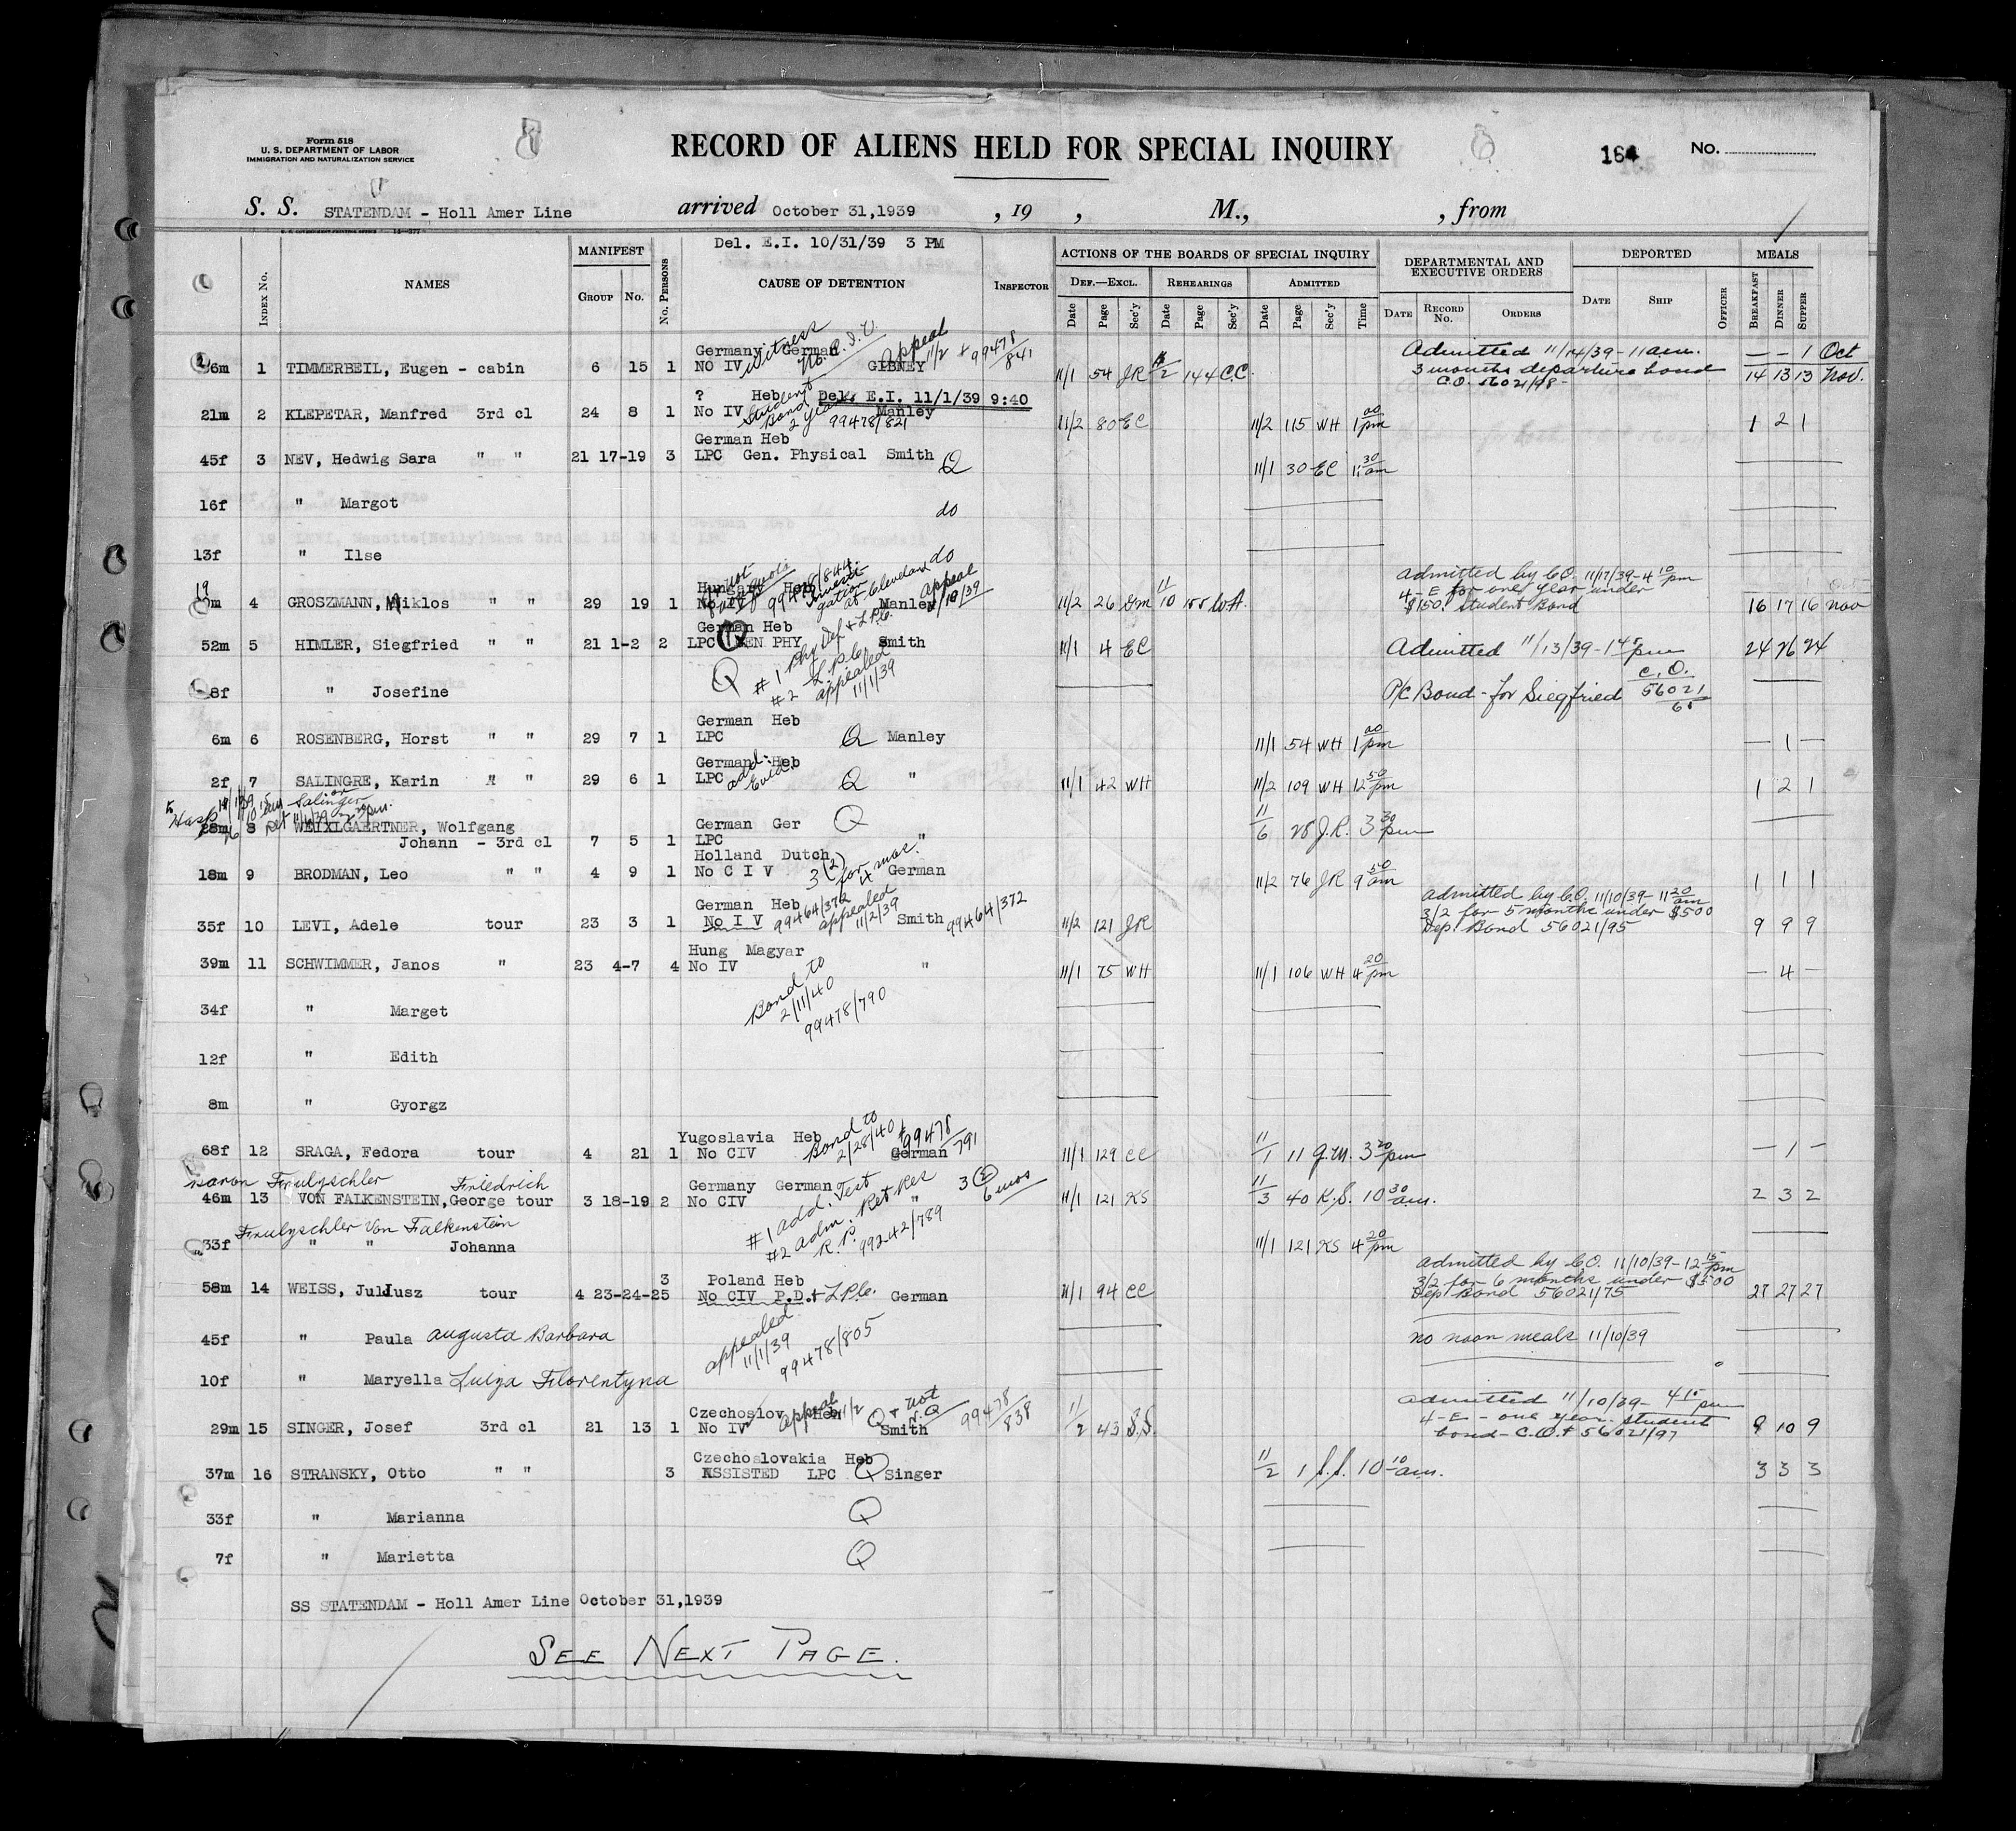 Form 518
U. S. DEPARTMENT OF LABOR
IMMIGRATION AND NATURALIZATION SERVICE
RECORD OF ALIENS HELD FOR SPECIAL INQUIRY
164 No.
S. S. STATENDAM - Holl Amer Line arrived October 31,1939 , 19 , M., , from
Del. E.I. 10/31/39 3 PM
Index No. NAMES MANIFEST Group No. No. Persons CAUSE OF DETENTION Inspector
ACTIONS OF THE BOARDS OF SPECIAL INQUIRY DEPARTMENTAL AND EXECUTIVE ORDERS DEPORTED MEALS
Def.—Excl. Rehearings Admitted
Date Page Sec'y Date Page Sec'y Date Page Sec'y Time Date Record No. Orders Date Ship Officer Breakfast Dinner Supper
Germany German Witness Appeal 11/2 99478/841 Admitted 11/14/39 - 11 am. — — 1 Oct
6m 1 TIMMERBEIL, Eugen - cabin 6 15 1 No IV GIBNEY 11/1 54 JR 144 C.C. 3 months departure bond 14 13 13 Nov.
C.O. 56021/98
? Heb Del. E.I. 11/1/39 9:40
21m 2 KLEPETAR, Manfred 3rd cl 24 8 1 No IV Student Bond 2 years Manley 99478/821 11/2 80 EC 11/2 115 WH 1 00 pm 1 2 1
German Heb
45f 3 NEV, Hedwig Sara " " 21 17-19 3 LPC Gen. Physical Smith Q 11/1 30 EC 11 30 am
16f " Margot do
13f " Ilse do
Hungary Heb Investigation at Cleveland Appeal Admitted by C.O. 11/17/39 - 4 10 pm
19 4 GROSZMANN, Miklos " " 29 19 1 No IV Manley 11/2 26 GM 11/10 155 WH. 4-E for one year under 16 17 16 Nov
$150. Student Bond
German Heb
52m 5 HIMLER, Siegfried " " 21 1-2 2 LPC GEN PHY Smith 11/1 4 EC Admitted 11/13/39 - 1 45 pm 24 26 24
8f " Josefine Q #1 Phy Def & L.P.C. #2 L.P.C. appealed 11/1/39 P/C Bond - for Siegfried C.O. 56021/65
German Heb
6m 6 ROSENBERG, Horst " " 29 7 1 LPC Q Manley 11/1 54 WH 1 00 pm — 1 —
German Heb
2f 7 SALINGRE, Karin " " 29 6 1 LPC add. Evid. Q " 11/1 42 WH 11/2 109 WH 12 50 pm 1 2 1
or Salinger
28m 8 WEIXLGAERTNER, Wolfgang German Ger Q 11/6 25 J.R. 3 30 pm
Johann - 3rd cl 7 5 1 LPC "
Holland Dutch
18m 9 BRODMAN, Leo " " 4 9 1 No C I V 3(2) for 4 mos. German 11/2 76 JR 9 50 am 1 1 1
German Heb Admitted by C.O. 11/10/39 - 11 20 am
35f 10 LEVI, Adele tour 23 3 1 No I V 99464/372 appealed 11/2/39 Smith 99464/372 11/2 121 JR 3/2 for 5 months under $500 9 9 9
Dep. Bond 56021/95
Hung Magyar
39m 11 SCHWIMMER, Janos " 23 4-7 4 No IV " 11/1 75 WH 11/1 106 WH 4 20 pm — 4 —
34f " Marget Bond to 2/11/40 99478/790
12f " Edith
8m " Gyorgz
Yugoslavia Heb
68f 12 SRAGA, Fedora tour 4 21 1 No CIV Bond to 2/28/40 99478/791 German 11/1 129 CC 11/1 11 G.M. 3 20 pm — 1 —
Baron Friedrich Germany German
46m 13 VON FALKENSTEIN, George tour 3 18-19 2 No CIV " 3(2) 6 mos 11/1 121 KS 11/3 40 K.S. 10 30 am. 2 3 2
Von Falkenstein #1 add. Test #2 adm. Ret Res R.P. 99242/789
33f " " Johanna 11/1 121 KS 4 20 pm
3 Poland Heb Admitted by C.O. 11/10/39 - 12 15 pm
58m 14 WEISS, Juliusz tour 4 23-24-25 No CIV P.D. & L.P.C. German 11/1 94 CC 3/2 for 6 months under $500 27 27 27
Dep. Bond 56021/75
45f " Paula Augusta Barbara appealed 11/1/39 99478/805 no noon meals 11/10/39
10f " Maryella Luiza Florentyna
Czechoslov Heb Admitted 11/10/39 - 4 15 pm
29m 15 SINGER, Josef 3rd cl 21 13 1 No IV Appeal 11/2 Q & Not N.Q Smith 99478/838 11/2 43 S.S. 4-E - one year student 9 10 9
bond - C.O. 56021/97
Czechoslovakia Heb
37m 16 STRANSKY, Otto " " 3 ASSISTED LPC Q Singer 11/2 1 S.S. 10 10 am. 3 3 3
33f " Marianna Q
7f " Marietta Q
SS STATENDAM - Holl Amer Line October 31,1939
SEE NEXT PAGE.